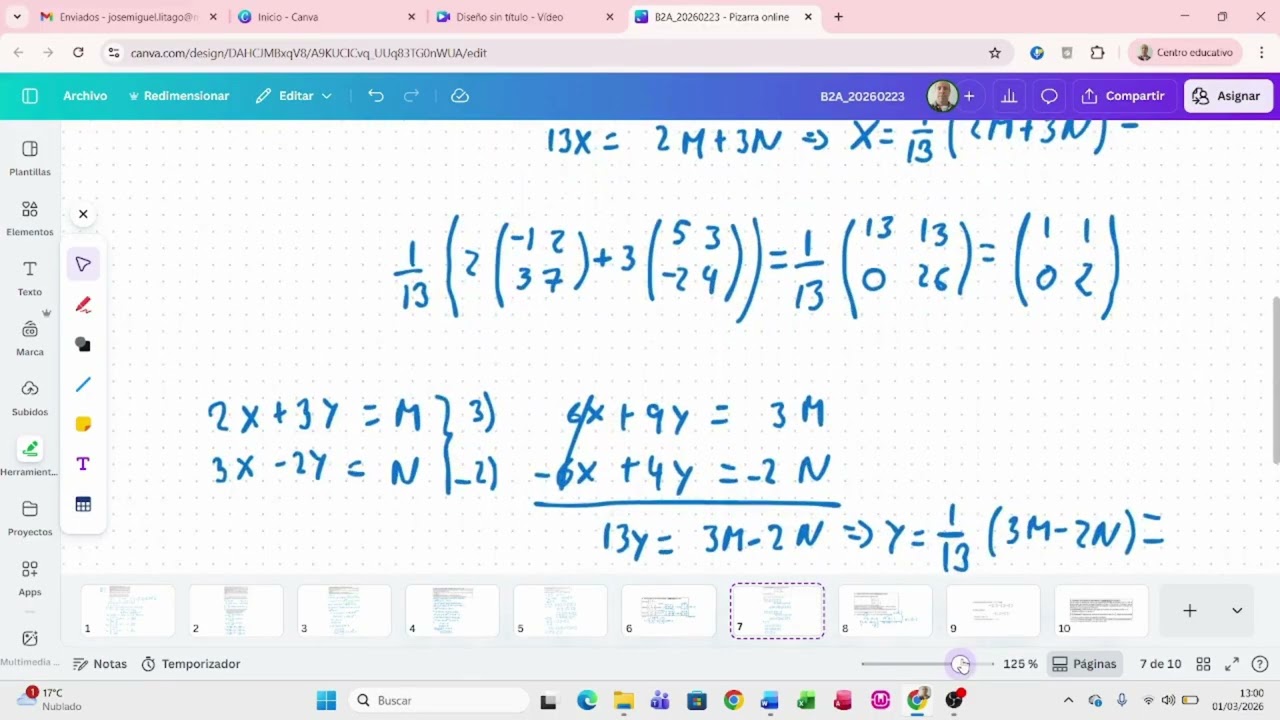 Enviados - josemiguel.litago@n
Inicio - Canva
Diseño sin título - Vídeo
B2A_20260223 - Pizarra online
canva.com/design/DAHCJMBxqV8/A9KUCICvq_UUq83TG0nWUA/edit
Centro educativo
Archivo
Redimensionar
Editar
B2A_20260223
Compartir
Asignar
Plantillas
Elementos
Texto
Marca
Subidos
Herramient...
Proyectos
Apps
Multimedia ...
13X = 2M+3N => X = 1/13 (2M+3N) =
1/13 (2 (-1 2 / 3 7) + 3 (5 3 / -2 4)) = 1/13 (13 13 / 0 26) = (1 1 / 0 2)
2X+3Y = M } 3) 6X + 9Y = 3M
3X -2Y = N } -2) -6X + 4Y = -2 N
13Y = 3M-2N => Y = 1/13 (3M-2N) =
1 2 3 4 5 6 7 8 9 10
Notas
Temporizador
125 %
Páginas
7 de 10
1
17°C
Nublado
Buscar
13:00
01/03/2026